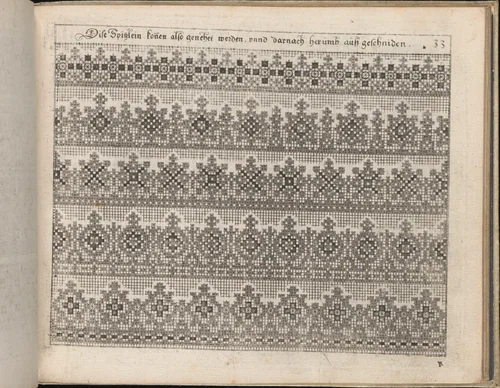 Dise Spitzlein konen also genehet werden, vnnd darnach herumb auß geschniden. 33